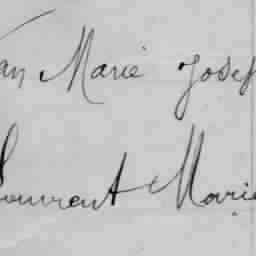 an Marie Josef
Laurent Marie